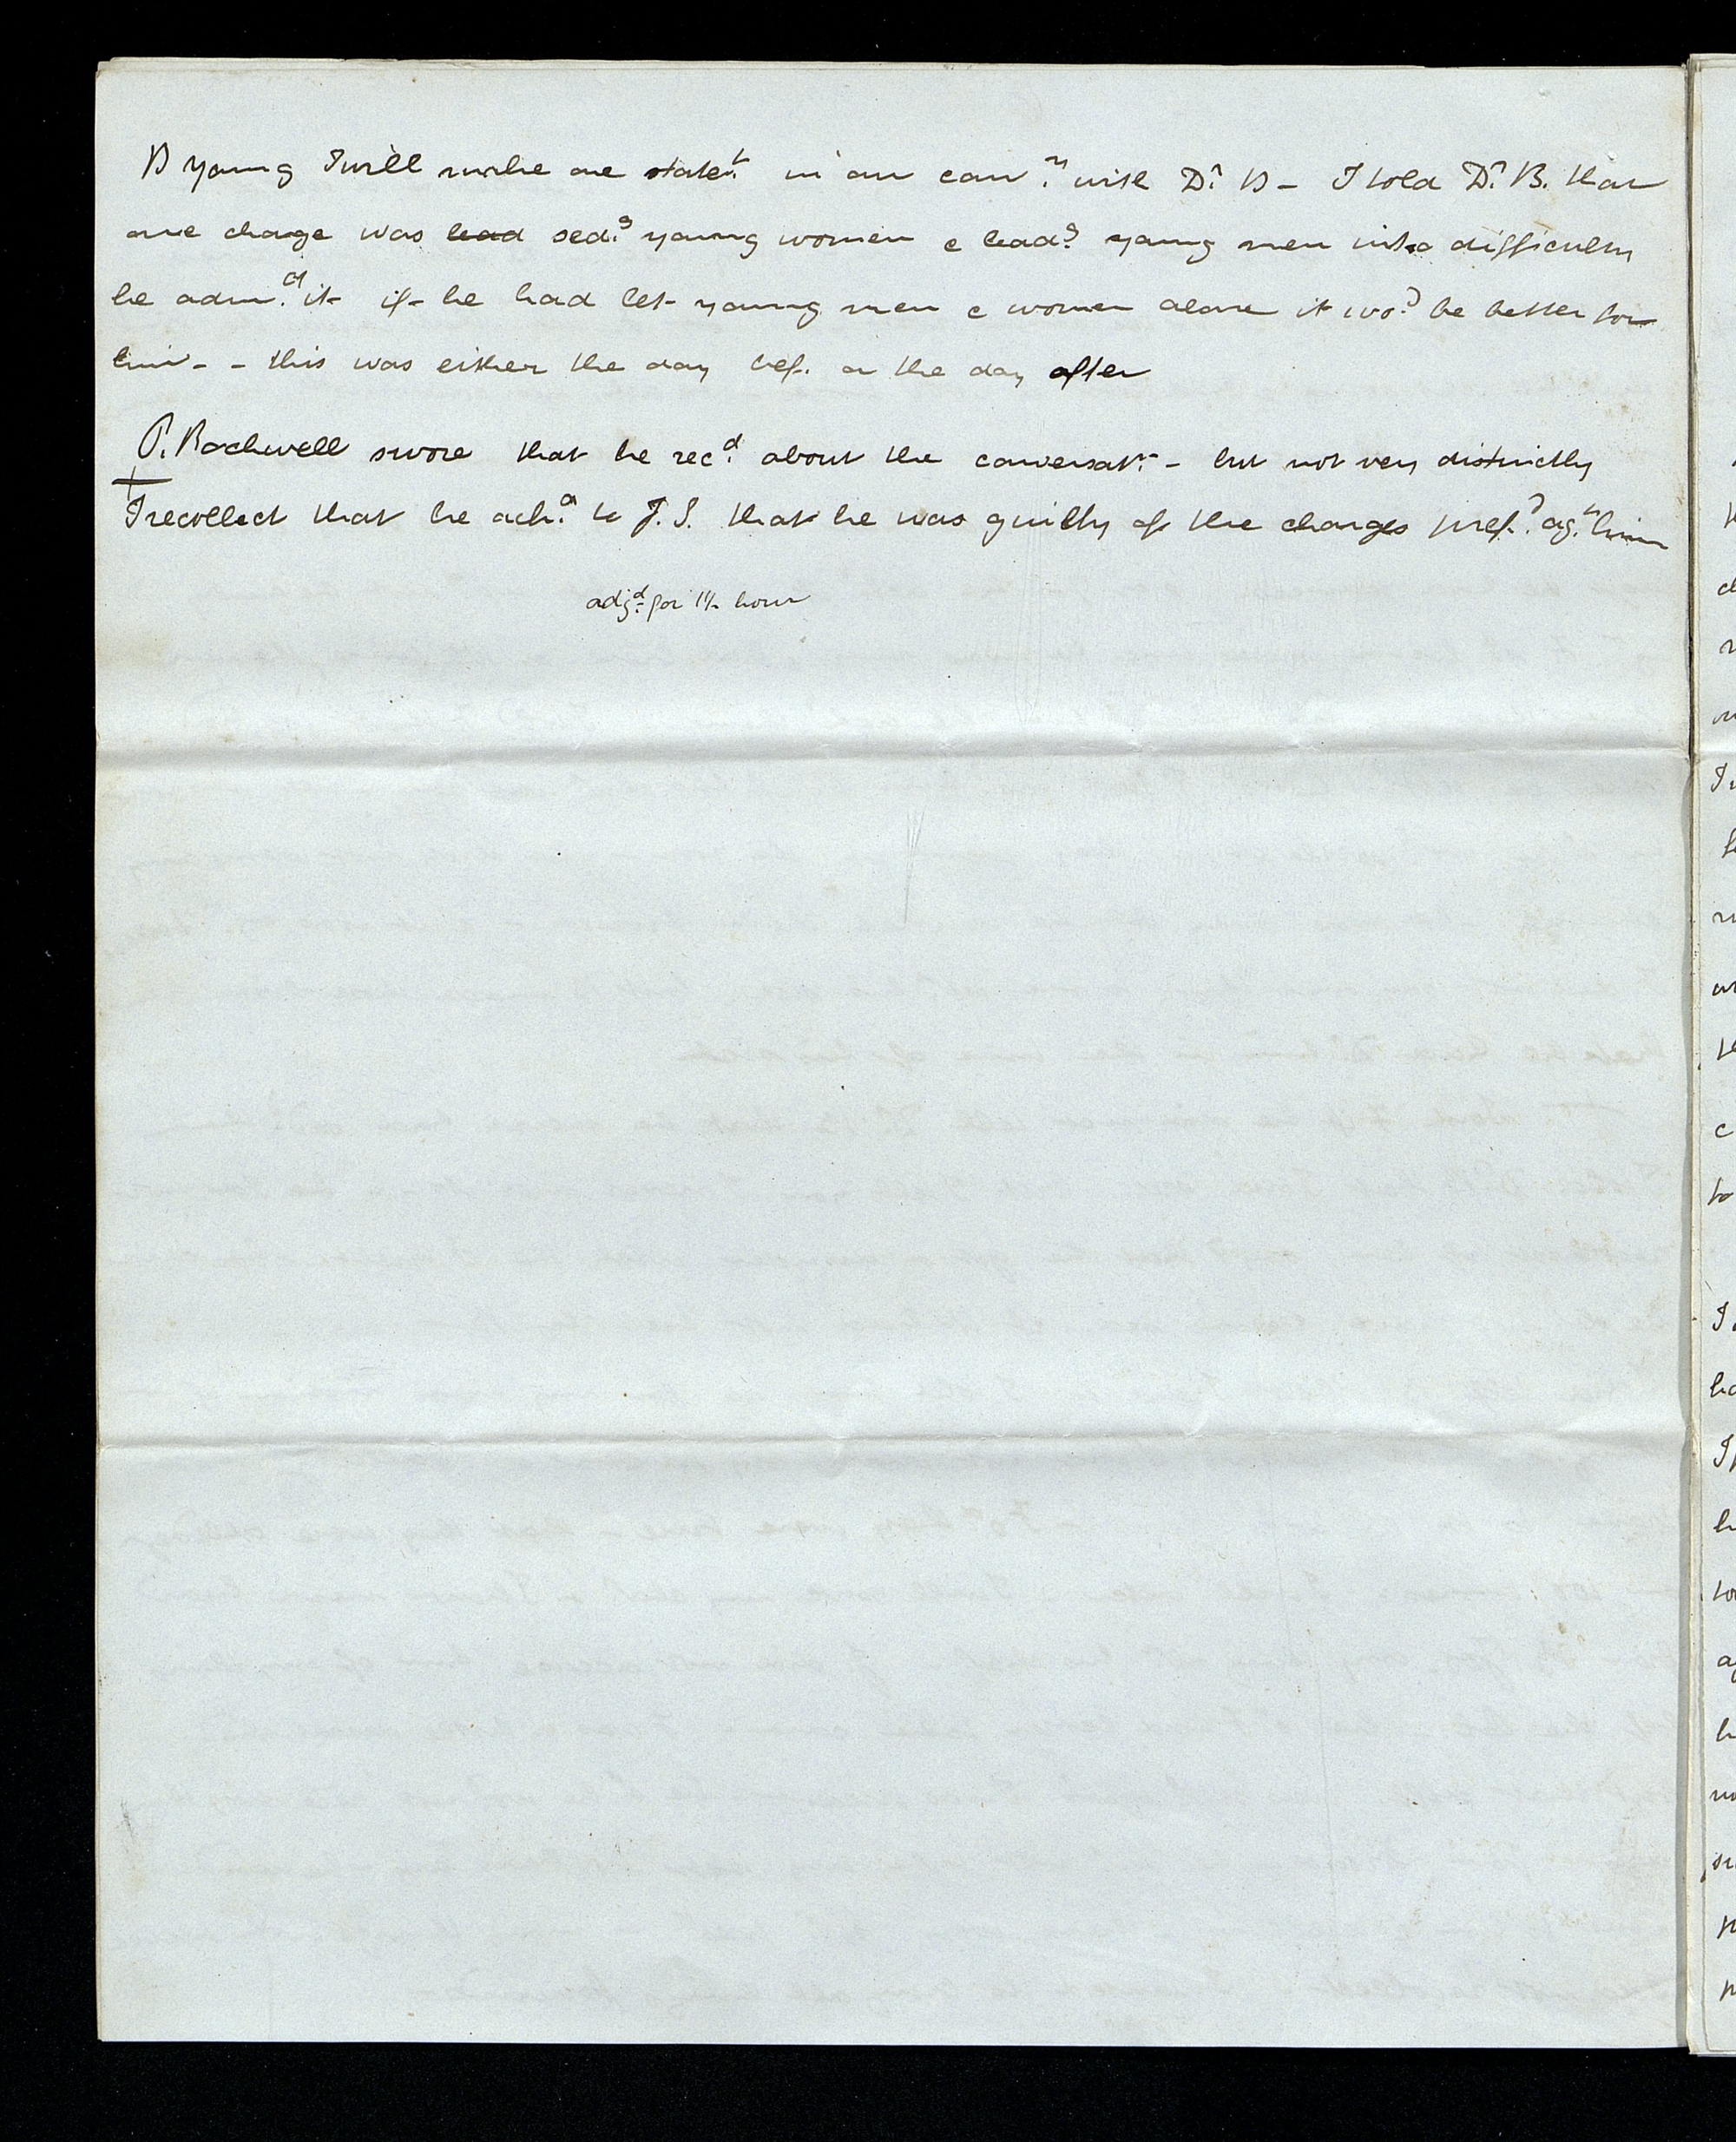 B Young I will make one statet. in our conn. with Dr. B - I told Dr. B. that
one charge was lead sedg. young women & leadg. young men into difficulty
he admd. it - if he had let young men & women alone it wod. be better for
him - - this was either the day bef. or the day after
P. Rockwell swore that he recd. about the conversatn. - but not very distinctly
I recollect that he ackd. to J. S. that he was guilty of the charges prefd. agt. him
adjd. for 1½ hour